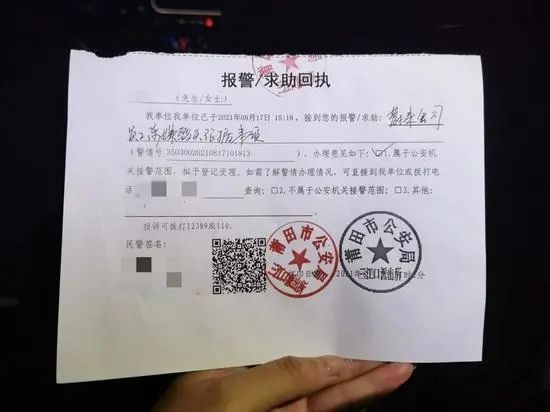 报警/求助回执
(先生/女士)
我单位我单位已于2021年08月17日 15:18,接到您的报警/求助:蔚来公司
员工高嫌毁灭证据事项
(警情号350300202108171018​13),办理意见如下:☑1.属于公安机
关接警范围,拟予登记受理,如需了解警情办理情况,可直接到我单位或拨打电
话 查询;☐2.不属于公安机关接警范围;☐3.其他:
投诉可拨打12389或110.
民警签名:
莆田市公安局
莆田市公安局
三江口派出所